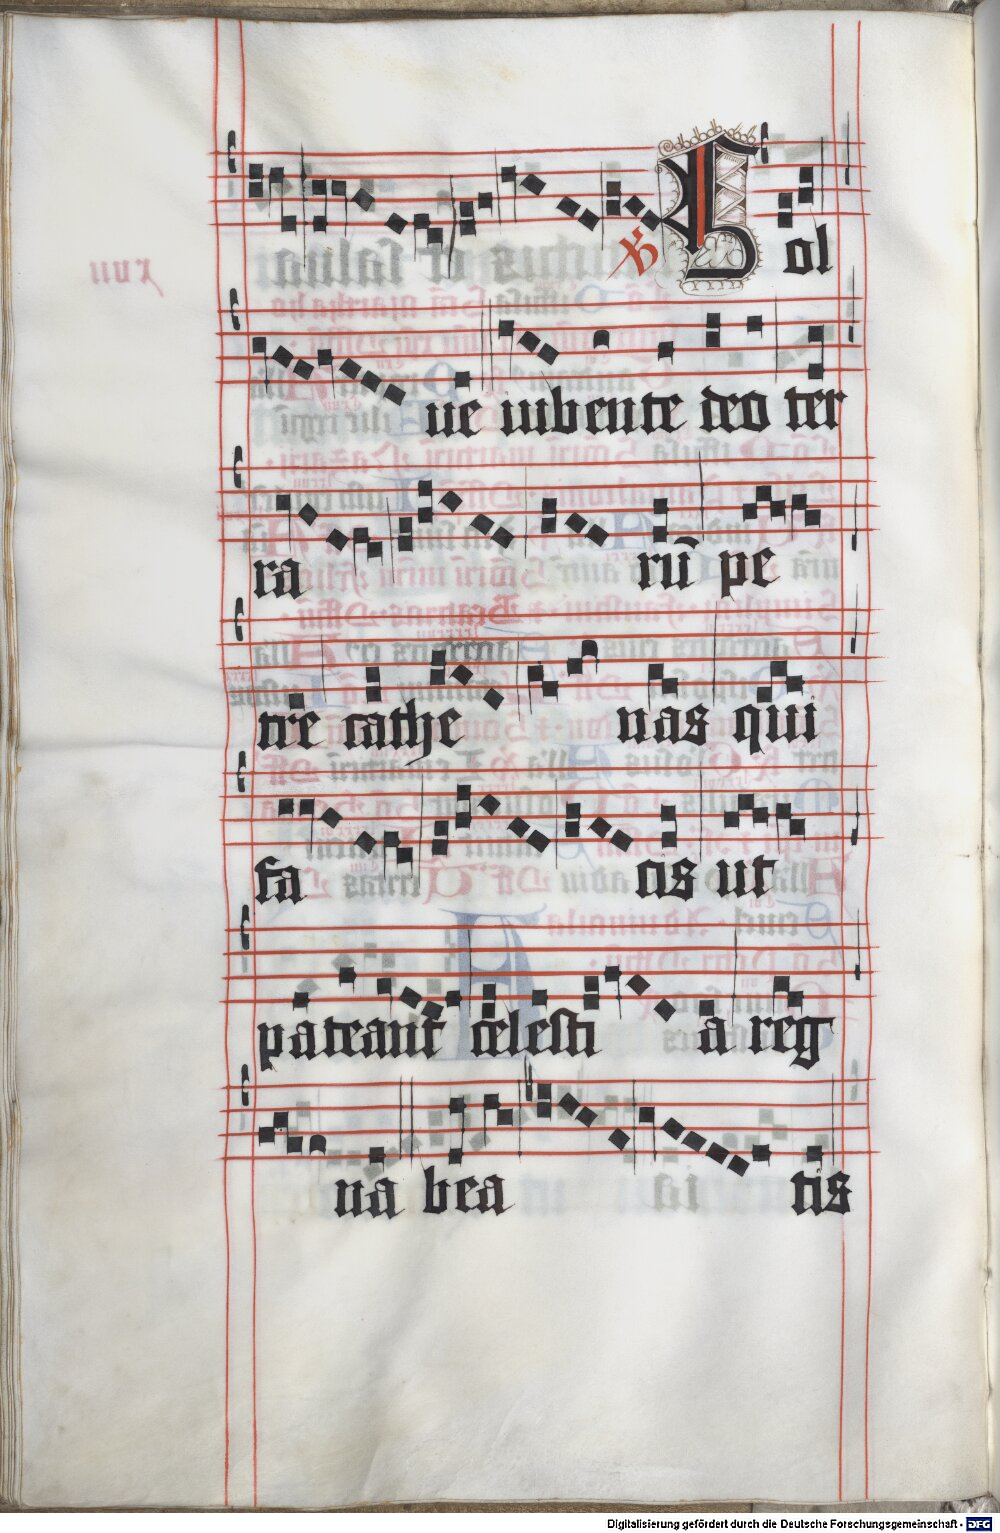 ℣ Sol
ue iubente deo ter
ra rū pe
tre cathe nas qui
fa cis ut
pateant celesti a reg
na bea tis
Digitalisierung gefördert durch die Deutsche Forschungsgemeinschaft - DFG